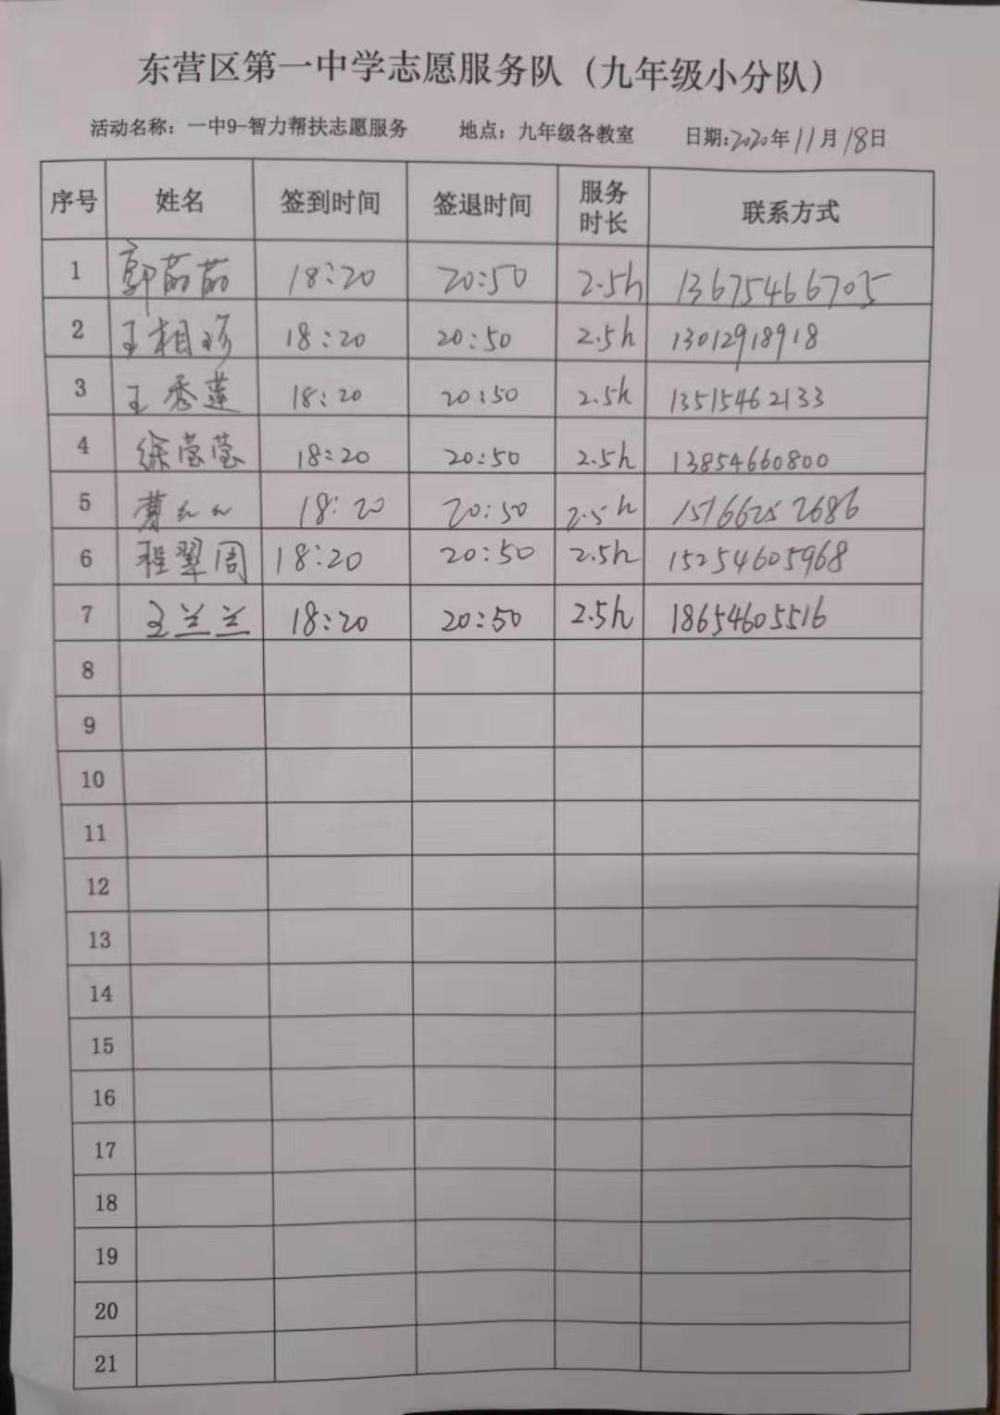 东营区第一中学志愿服务队（九年级小分队）
活动名称：一中9-智力帮扶志愿服务 地点：九年级各教室 日期:2020年11月18日
序号 姓名 签到时间 签退时间 服务时长 联系方式
1 郭茹茹 18:20 20:50 2.5h 13675466705
2 王相珍 18:20 20:50 2.5h 13012918918
3 王秀莲 18:20 20:50 2.5h 13515462133
4 徐莹莹 18:20 20:50 2.5h 13854660800
5 18:20 20:50 2.5h 15166252686
6 程翠周 18:20 20:50 2.5h 15254605968
7 王兰兰 18:20 20:50 2.5h 18654605516
8
9
10
11
12
13
14
15
16
17
18
19
20
21